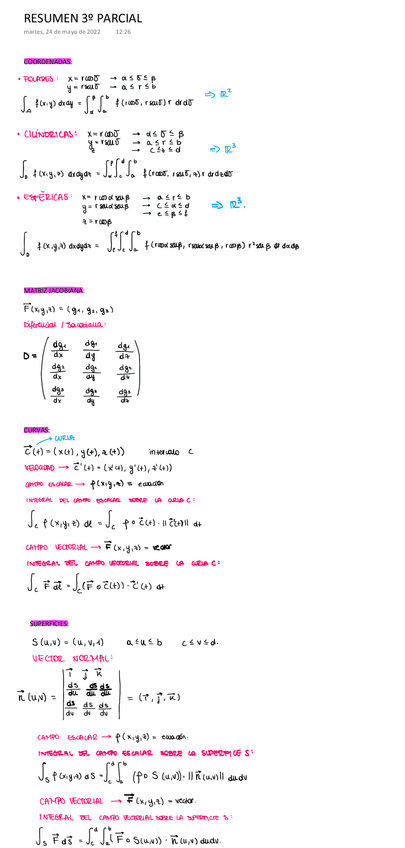 RESUMEN 3º PARCIAL
martes, 24 de mayo de 2022 12:26
COORDENADAS:
• POLARES: x = r cosσ → α ≤ σ ≤ β
y = r senσ → a ≤ r ≤ b
⇒ ℝ²
∫_Ω f(x,y) dxdy = ∫_α^β ∫_a^b f(r cosσ, r senσ) r dr dσ
• CILÍNDRICAS: x = r cosσ → α ≤ σ ≤ β
y = r senσ → a ≤ r ≤ b
z → c ≤ z ≤ d
⇒ ℝ³
∫_D f(x,y,z) dxdydz = ∫_α^β ∫_c^d ∫_a^b f(r cosσ, r senσ, z) r dr dz dσ
• ESFÉRICAS: x = r cosα senβ → a ≤ r ≤ b
y = r senα senβ → c ≤ α ≤ d
z = r cosβ → e ≤ β ≤ f
⇒ ℝ³.
∫_D f(x,y,z) dxdydz = ∫_e^f ∫_c^d ∫_a^b f(r cosα senβ, r senα senβ, r cosβ) r² senβ dr dα dβ
MATRIZ JACOBIANA:
F(x,y,z) = (g₁, g₂, g₃)
Diferencial / Jacobiana:
D =
dg₁/dx dg₁/dy dg₁/dz
dg₂/dx dg₂/dy dg₂/dz
dg₃/dx dg₃/dy dg₃/dz
CURVAS:
→ CURVA
C(t) = (x(t), y(t), z(t)) intervalo C
VELOCIDAD → C'(t) = (x'(t), y'(t), z'(t))
CAMPO ESCALAR → f(x,y,z) = ecuación
INTEGRAL DEL CAMPO ESCALAR SOBRE LA CURVA C:
∫_C f(x,y,z) dl = ∫_C f o C(t) · ||C'(t)|| dt
CAMPO VECTORIAL → F(x,y,z) = vector
INTEGRAL DEL CAMPO VECTORIAL SOBRE LA CURVA C:
∫_C F dl = ∫_C (F o C(t)) · C'(t) dt
SUPERFICIES:
S(u,v) = (u, v, 1) a ≤ u ≤ b c ≤ v ≤ d.
VECTOR NORMAL:
i j k
n(u,v) = ds/du ds/du ds/du = (i, j, k)
ds/dv ds/dv ds/dv
CAMPO ESCALAR → f(x,y,z) = ecuación.
INTEGRAL DEL CAMPO ESCALAR SOBRE LA SUPERFICIE S:
∫_S f(x,y,z) dS = ∫_c^d ∫_a^b (f o S(u,v)) · ||n(u,v)|| du dv
CAMPO VECTORIAL → F(x,y,z) = vector.
INTEGRAL DEL CAMPO VECTORIAL SOBRE LA SUPERFICIE S:
∫_S F dS = ∫_c^d ∫_a^b (F o S(u,v)) · n(u,v) du dv.